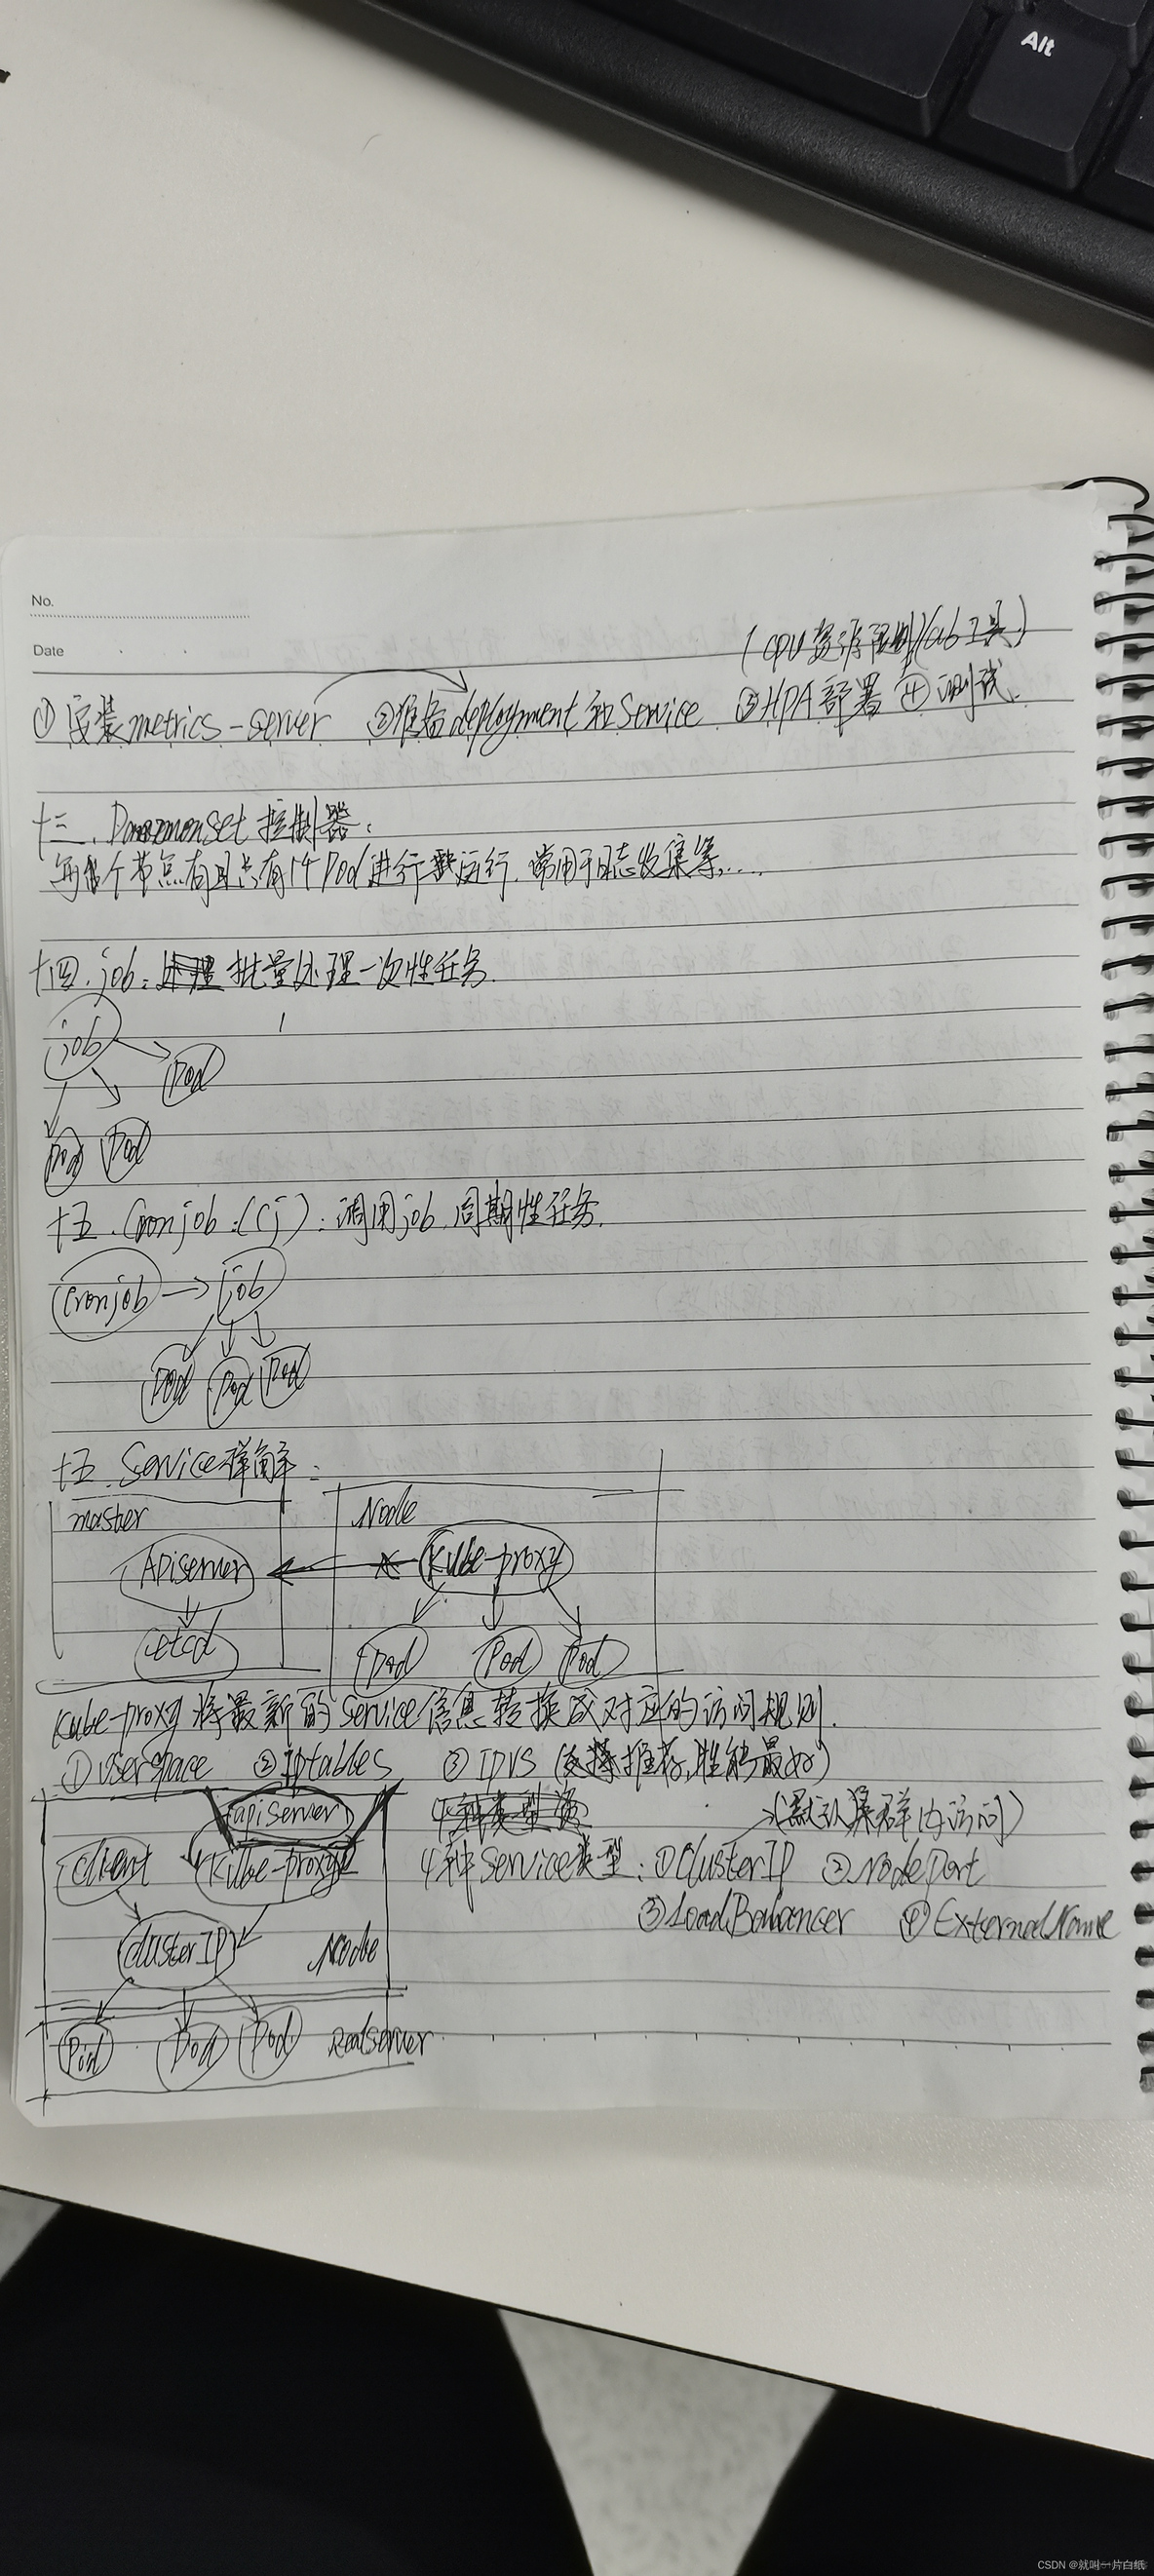 Alt
No.
Date
(CPU资源限制)(ab工具)
①安装metrics-server ②准备deployment和Service ③HPA部署 ④测试.
十三.Daemonset控制器:
每个节点有且只有1个Pod进行运行,常用于日志收集等....
十四.job:处理批量处理一次性任务.
job
Pod
Pod Pod
十五.Cronjob:(cj):调用job,周期性任务.
Cronjob job
Pod Pod Pod
十五.Service详解:
master Node
Apiserver Kube-proxy
etcd Pod Pod Pod
Kube-proxy将最新的Service信息转换成对应的访问规则.
①userspace ②Iptables ③IPVS(支持推荐,性能最好)
apiserver 4种类型 (默认集群内访问)
client Kube-proxy 4种Service类型:①ClusterIP ②NodePort
③LoadBalancer ④ExternalName
clusterIP Node
Pod Pod Pod Realserver
CSDN @就叫一片白纸